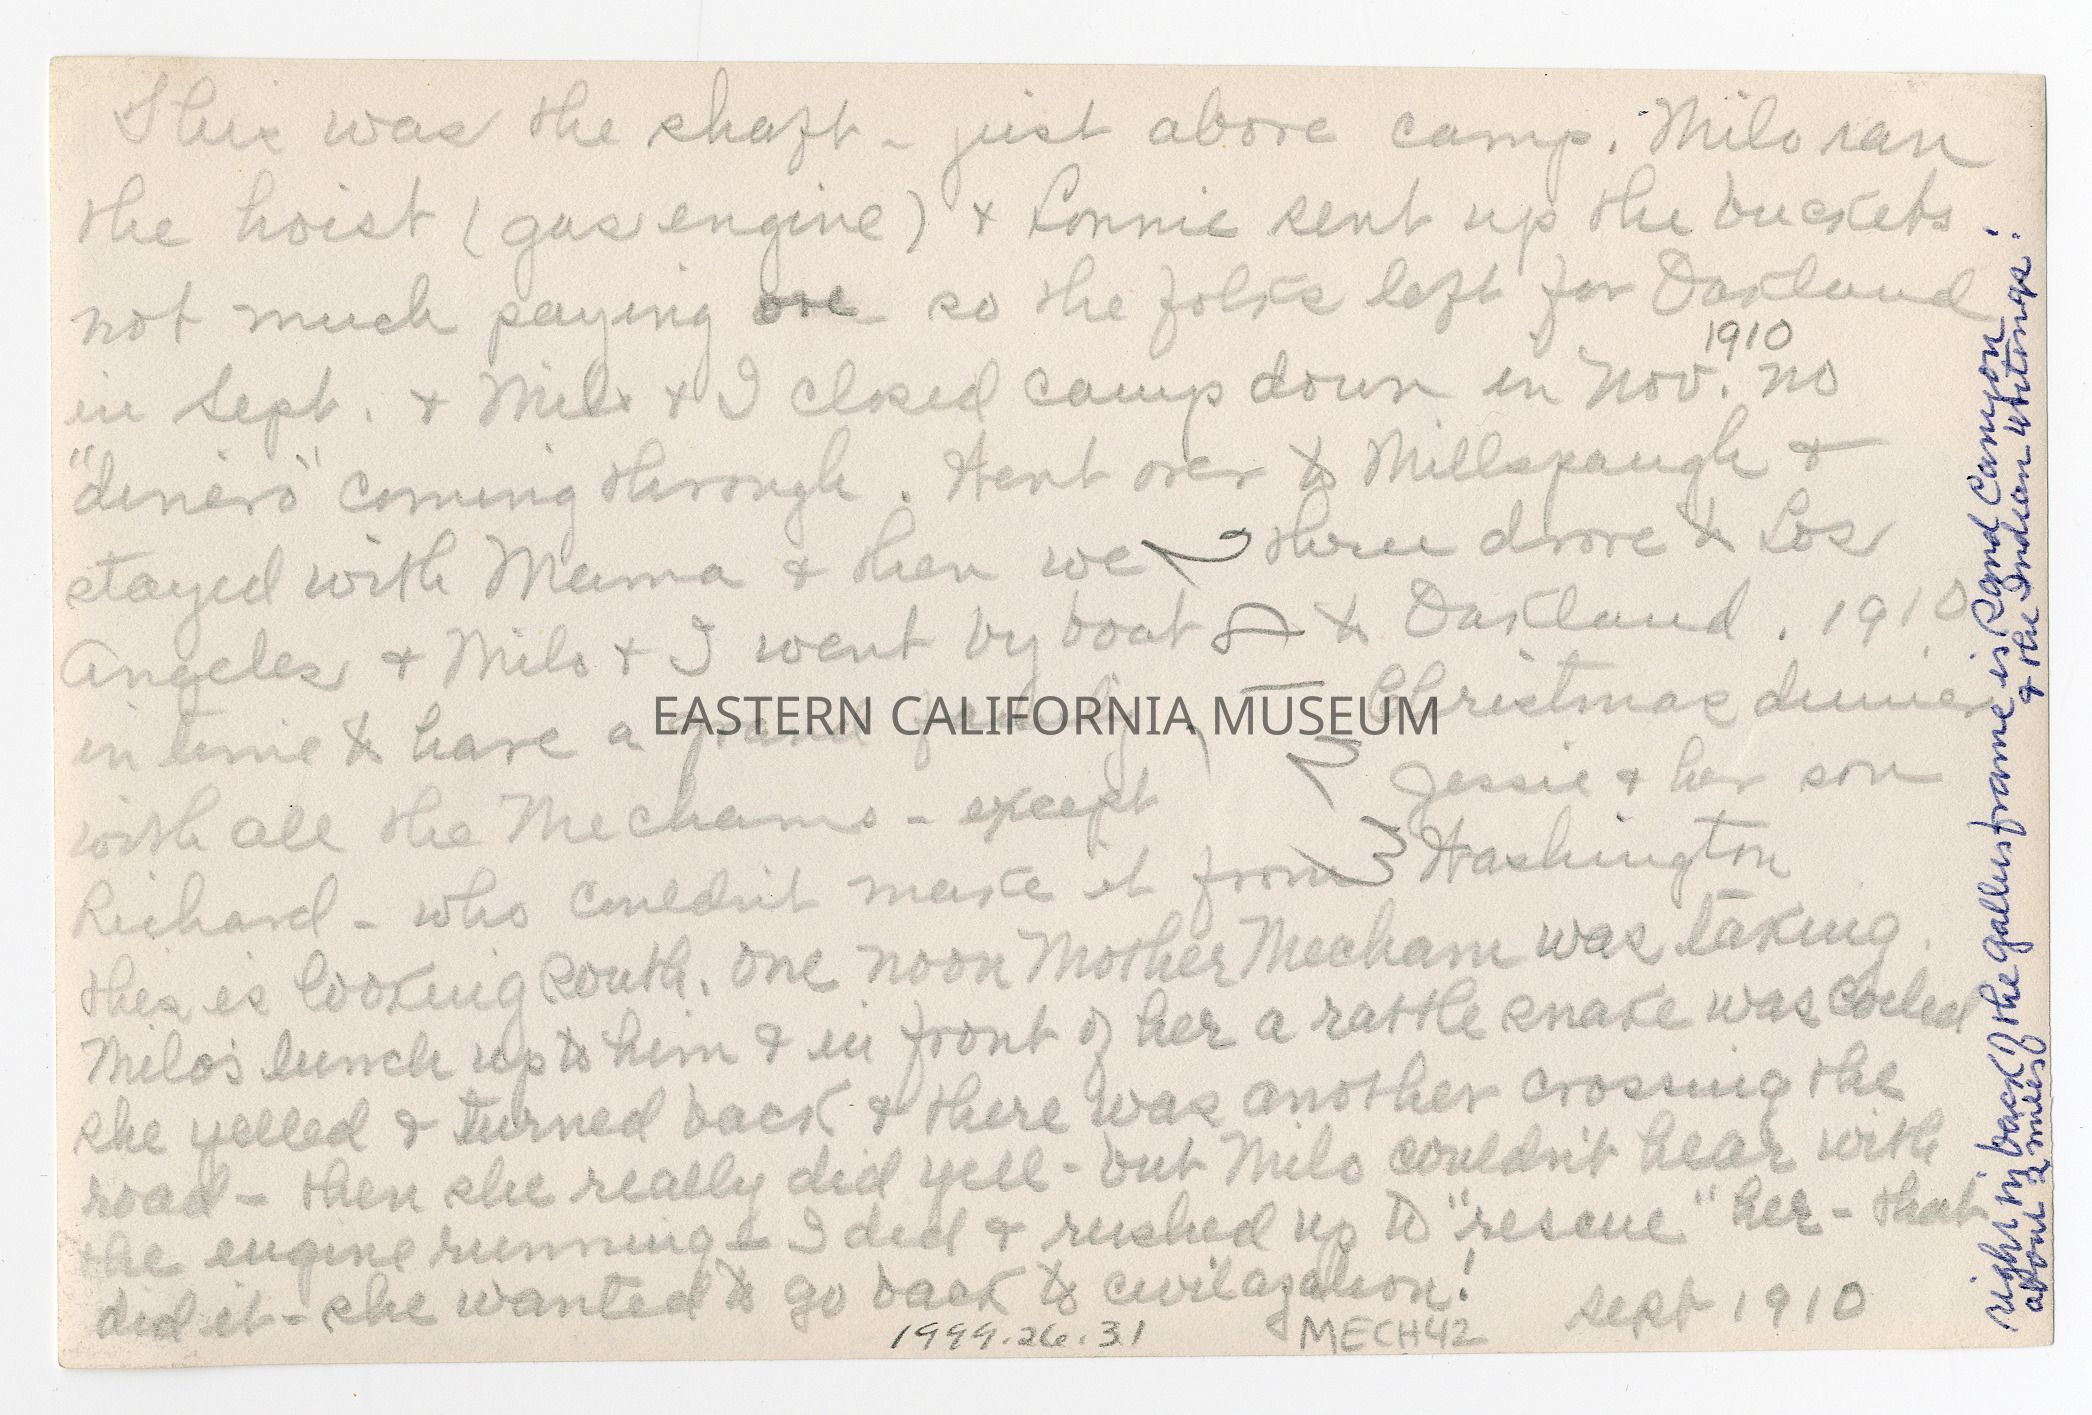 This was the shaft - just above camp. Milo ran
the hoist (gas engine) & Lonnie sent up the buckets
not much paying ore so the folks left for Oakland
in Sept. & Milo & I closed camp down in Nov. 1910 no
"dinero" coming through. Went over to Millspaugh &
stayed with Mama & then we three drove to Los
Angeles & Milo & I went by boat to Oakland. 1910
in time to have a grand family Christmas dinner
with all the Mechams - except Jessie & her son
Richard - who couldn't make it from Washington
this is looking south. One noon Mother Mecham was taking
Milo's lunch up to him & in front of her a rattle snake was coiled
she yelled & turned back & there was another crossing the
road - then she really did yell - but Milo couldn't hear with
the engine running - I did & rushed up to "rescue" her - that
did it - she wanted to go back to civilazation!
Sept 1910
1999.26.31
MECH42
right in back of the gallus frame is Sand Canyon!
about 2 miles & the Indian writings.
EASTERN CALIFORNIA MUSEUM